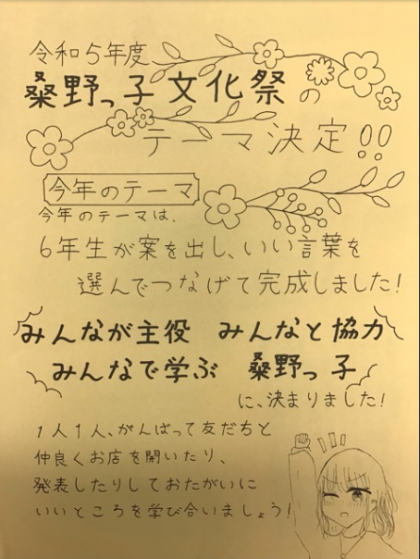 令和5年度
桑野っ子文化祭の
テーマ決定!!
今年のテーマ
今年のテーマは、
6年生が案を出し、いい言葉を
選んでつなげて完成しました!
みんなが主役 みんなと協力
みんなで学ぶ 桑野っ子
に、決まりました!
1人1人、がんばって友だちと
仲良くお店を開いたり、
発表したりしておたがいに
いいところを学び合いましょう!